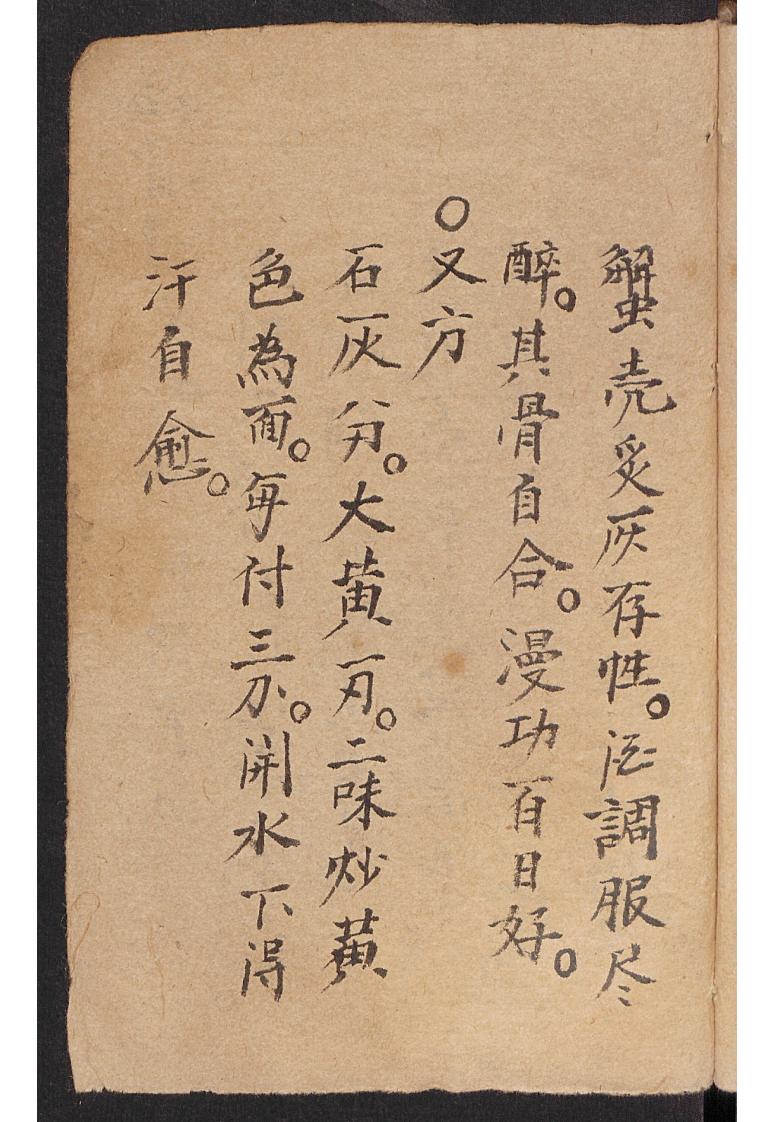 蟹壳炙灰存性。酒調服尽
醉。其骨自合。漫功百日好。
○又方
石灰八刃。大黄一刃。二味炒黄
色為面。每付三分。開水下得
汗自愈。